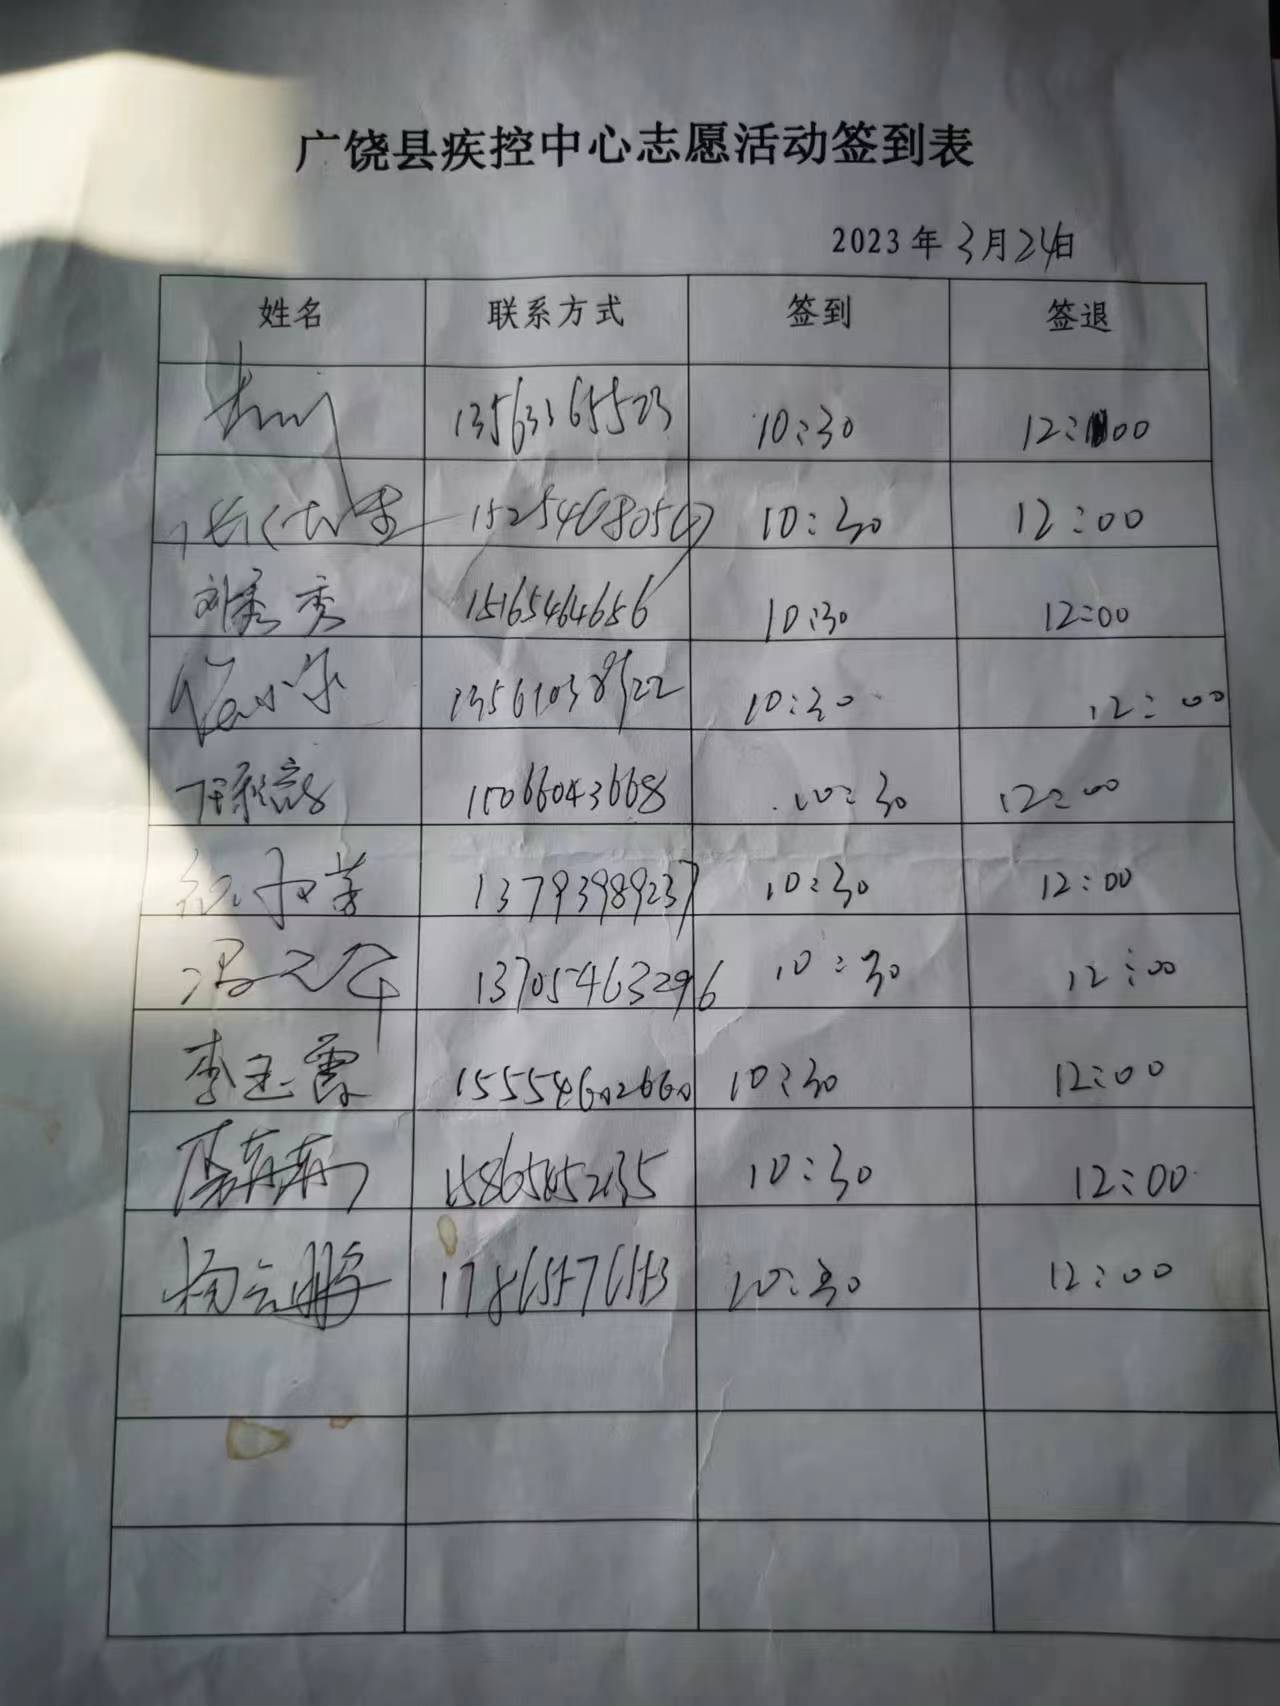 广饶县疾控中心志愿活动签到表
2023年3月24日
姓名 联系方式 签到 签退
13563365523 10:30 12:00
10:30 12:00
刘秀秀 15165464656 10:30 12:00
10:30 12:00
15066043668 10:30 12:00
13793989237 10:30 12:00
冯 13705463296 10:30 12:00
李玉霞 15554602660 10:30 12:00
15865452135 10:30 12:00
杨云鹏 10:30 12:00